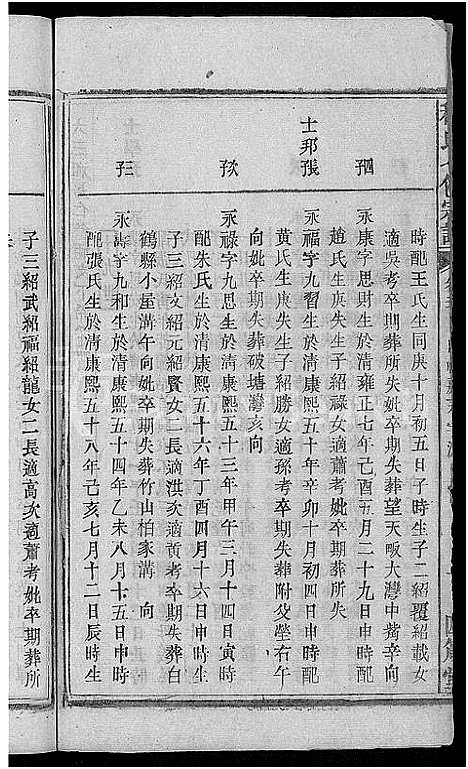 時配王氏生同庚十月初五日子時生子二紹覆紹載女
適吳考卒期葬所失妣卒期失葬望天畈大灣中嘴辛向
四
永康字思財生於清雍正七年己酉五月二十九日申時配
趙氏生庚失生子紹祿女適蕭考妣卒期葬所失
士邦長
永福字九習生於清康熙五十年辛卯十月初四日申時配
黃氏生庚失生子紹勝女適孫考卒期失葬附父塋右午
向妣卒期失葬破塘灣亥向
次
永祿字九思生於清康熙五十三年甲午三月十四日寅時
配朱氏生於清康熙五十六年丁酉四月十六日申時生
子三紹文紹元紹賢女二長適洪次適黃考卒期失葬白
鶴縣小屋溝午向妣卒期失葬竹山柏家溝 向
三
永壽字九和生於清康熙五十四年乙未八月十五日申時
配張氏生於清康熙五十八年己亥七月十二日辰時生
子三紹武紹福紹龍女二長適高次適蕭考妣卒期葬所